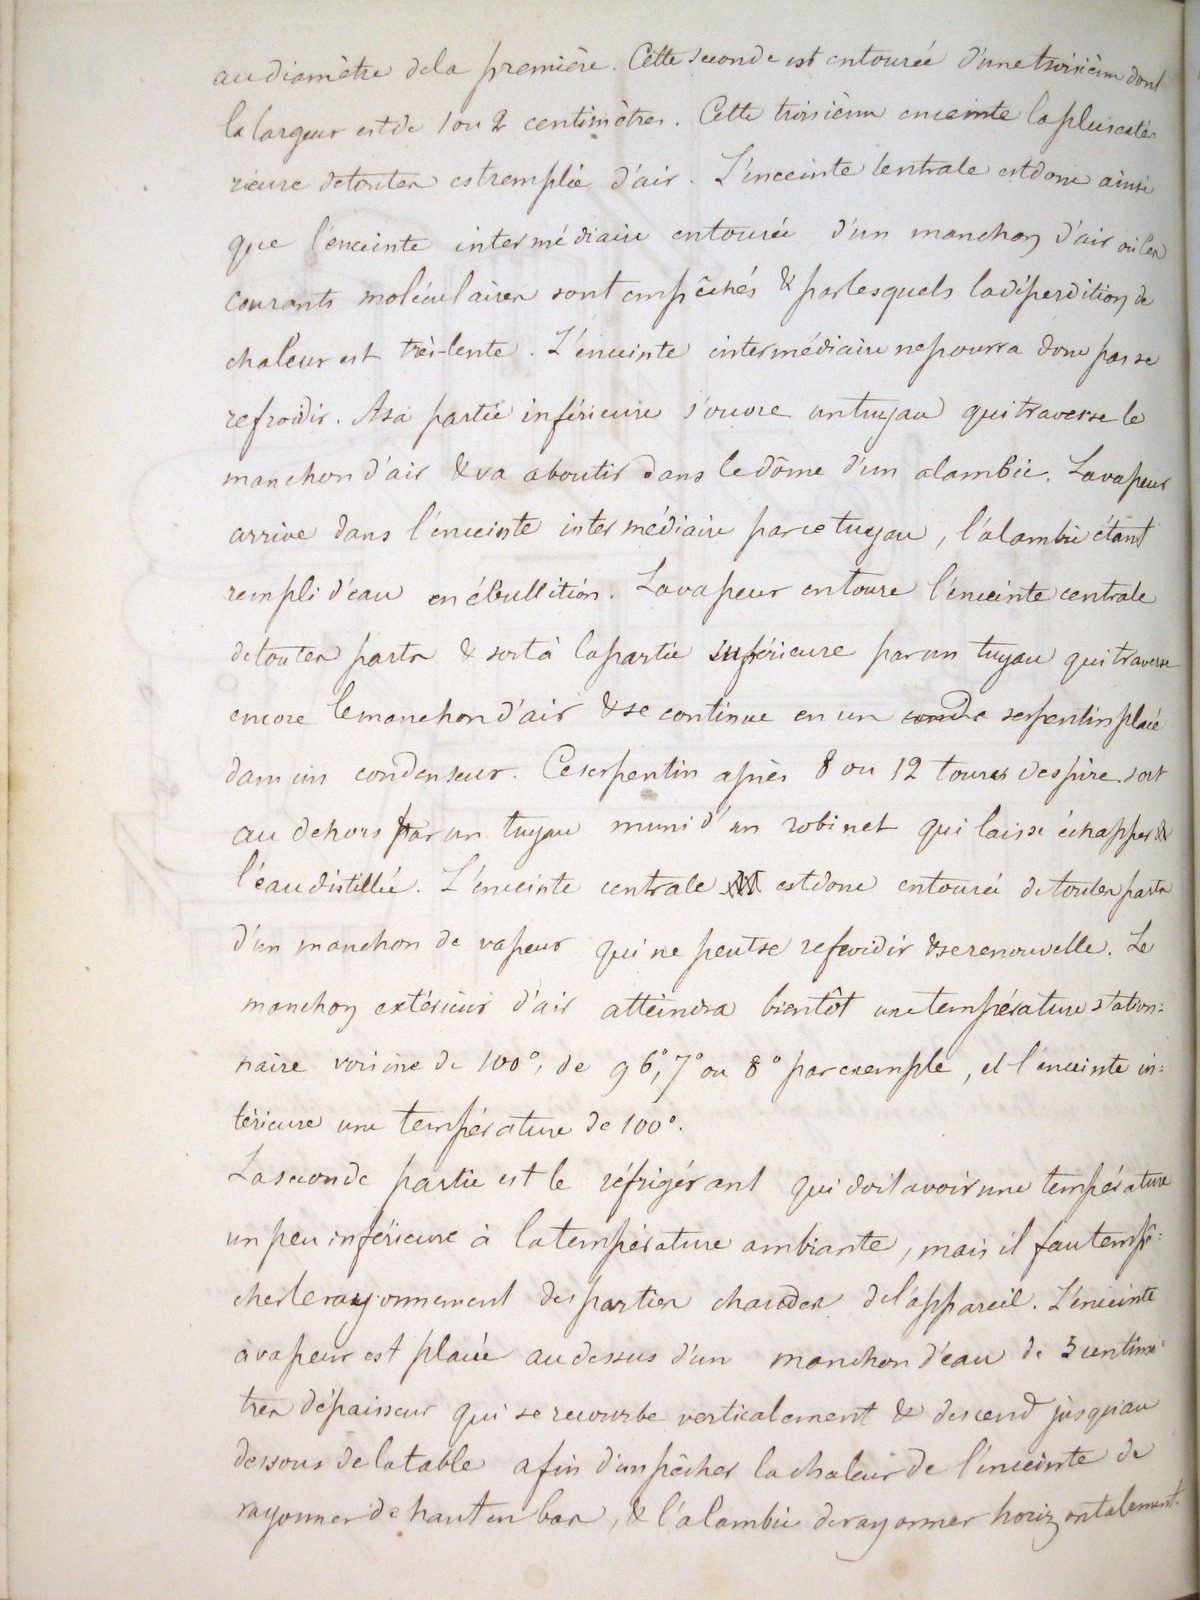 au diamètre de la première. Cette seconde est entourée d'une troisième dont
la largeur est de 1 ou 2 centimètres. Cette troisième enceinte la plus exté-
rieure de toutes est remplie d'air. L'enceinte centrale est donc ainsi
que l'enceinte intermédiaire entourée d'un manchon d'air où les
courants moléculaires sont empêchés & par lesquels la déperdition de
chaleur est très-lente. L'enceinte intermédiaire ne pourra donc pas se
refroidir. A sa partie inférieure s'ouvre un tuyau qui traverse le
manchon d'air & va aboutir dans le dôme d'un alambic. La vapeur
arrive dans l'enceinte intermédiaire par ce tuyau, l'alambic étant
rempli d'eau en ébullition. La vapeur entoure l'enceinte centrale
de toutes parts & sort à la partie supérieure par un tuyau qui traverse
encore le manchon d'air & se continue en un serpentin placé
dans un condenseur. Ce serpentin après 8 ou 12 tours de spire sort
au dehors par un tuyau muni d'un robinet qui laisse échapper
l'eau distillée. L'enceinte centrale est donc entourée de toutes parts
d'un manchon de vapeur qui ne peut se refroidir & se renouvelle. Le
manchon extérieur d'air atteindra bientôt une température station=
naire voisine de 100°, de 96°, 7° ou 8° par exemple, et l'enceinte in=
térieure une température de 100°.
La seconde partie est le réfrigérant qui doit avoir une température
un peu inférieure à la température ambiante, mais il faut empê=
cher le rayonnement des parties chaudes de l'appareil. L'enceinte
à vapeur est placée au dessus d'un manchon d'eau de 5 centimè=
tres d'épaisseur qui se recourbe verticalement & descend jusqu'au
dessous de la table afin d'empêcher la chaleur de l'enceinte de
rayonner de haut en bas, & l'alambic de rayonner horizontalement.